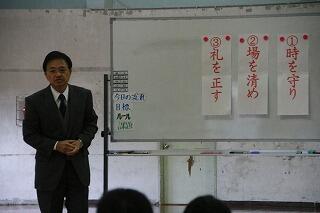 ①時を守り
②場を清め
③礼を正す
今日の流れ
目標
ルール
課題